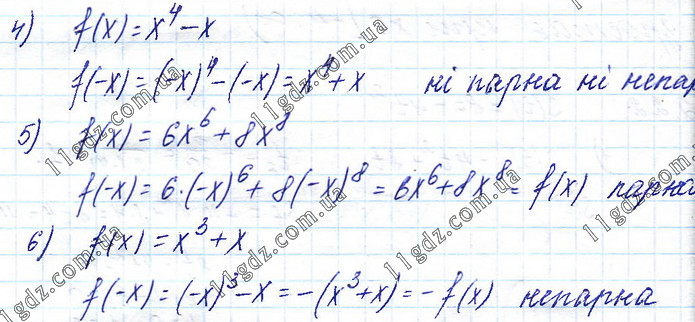 4) f(x) = x⁴ - x
f(-x) = (-x)⁴ - (-x) = x⁴ + x ні парна ні непар
5) f(x) = 6x⁶ + 8x⁸
f(-x) = 6·(-x)⁶ + 8(-x)⁸ = 6x⁶ + 8x⁸ = f(x) парна
6) f(x) = x³ + x
f(-x) = (-x)³ - x = -(x³ + x) = -f(x) непарна
11gdz.com.ua
11gdz.com.ua
11gdz.com.ua
11gdz.com.ua
11gdz.com.ua